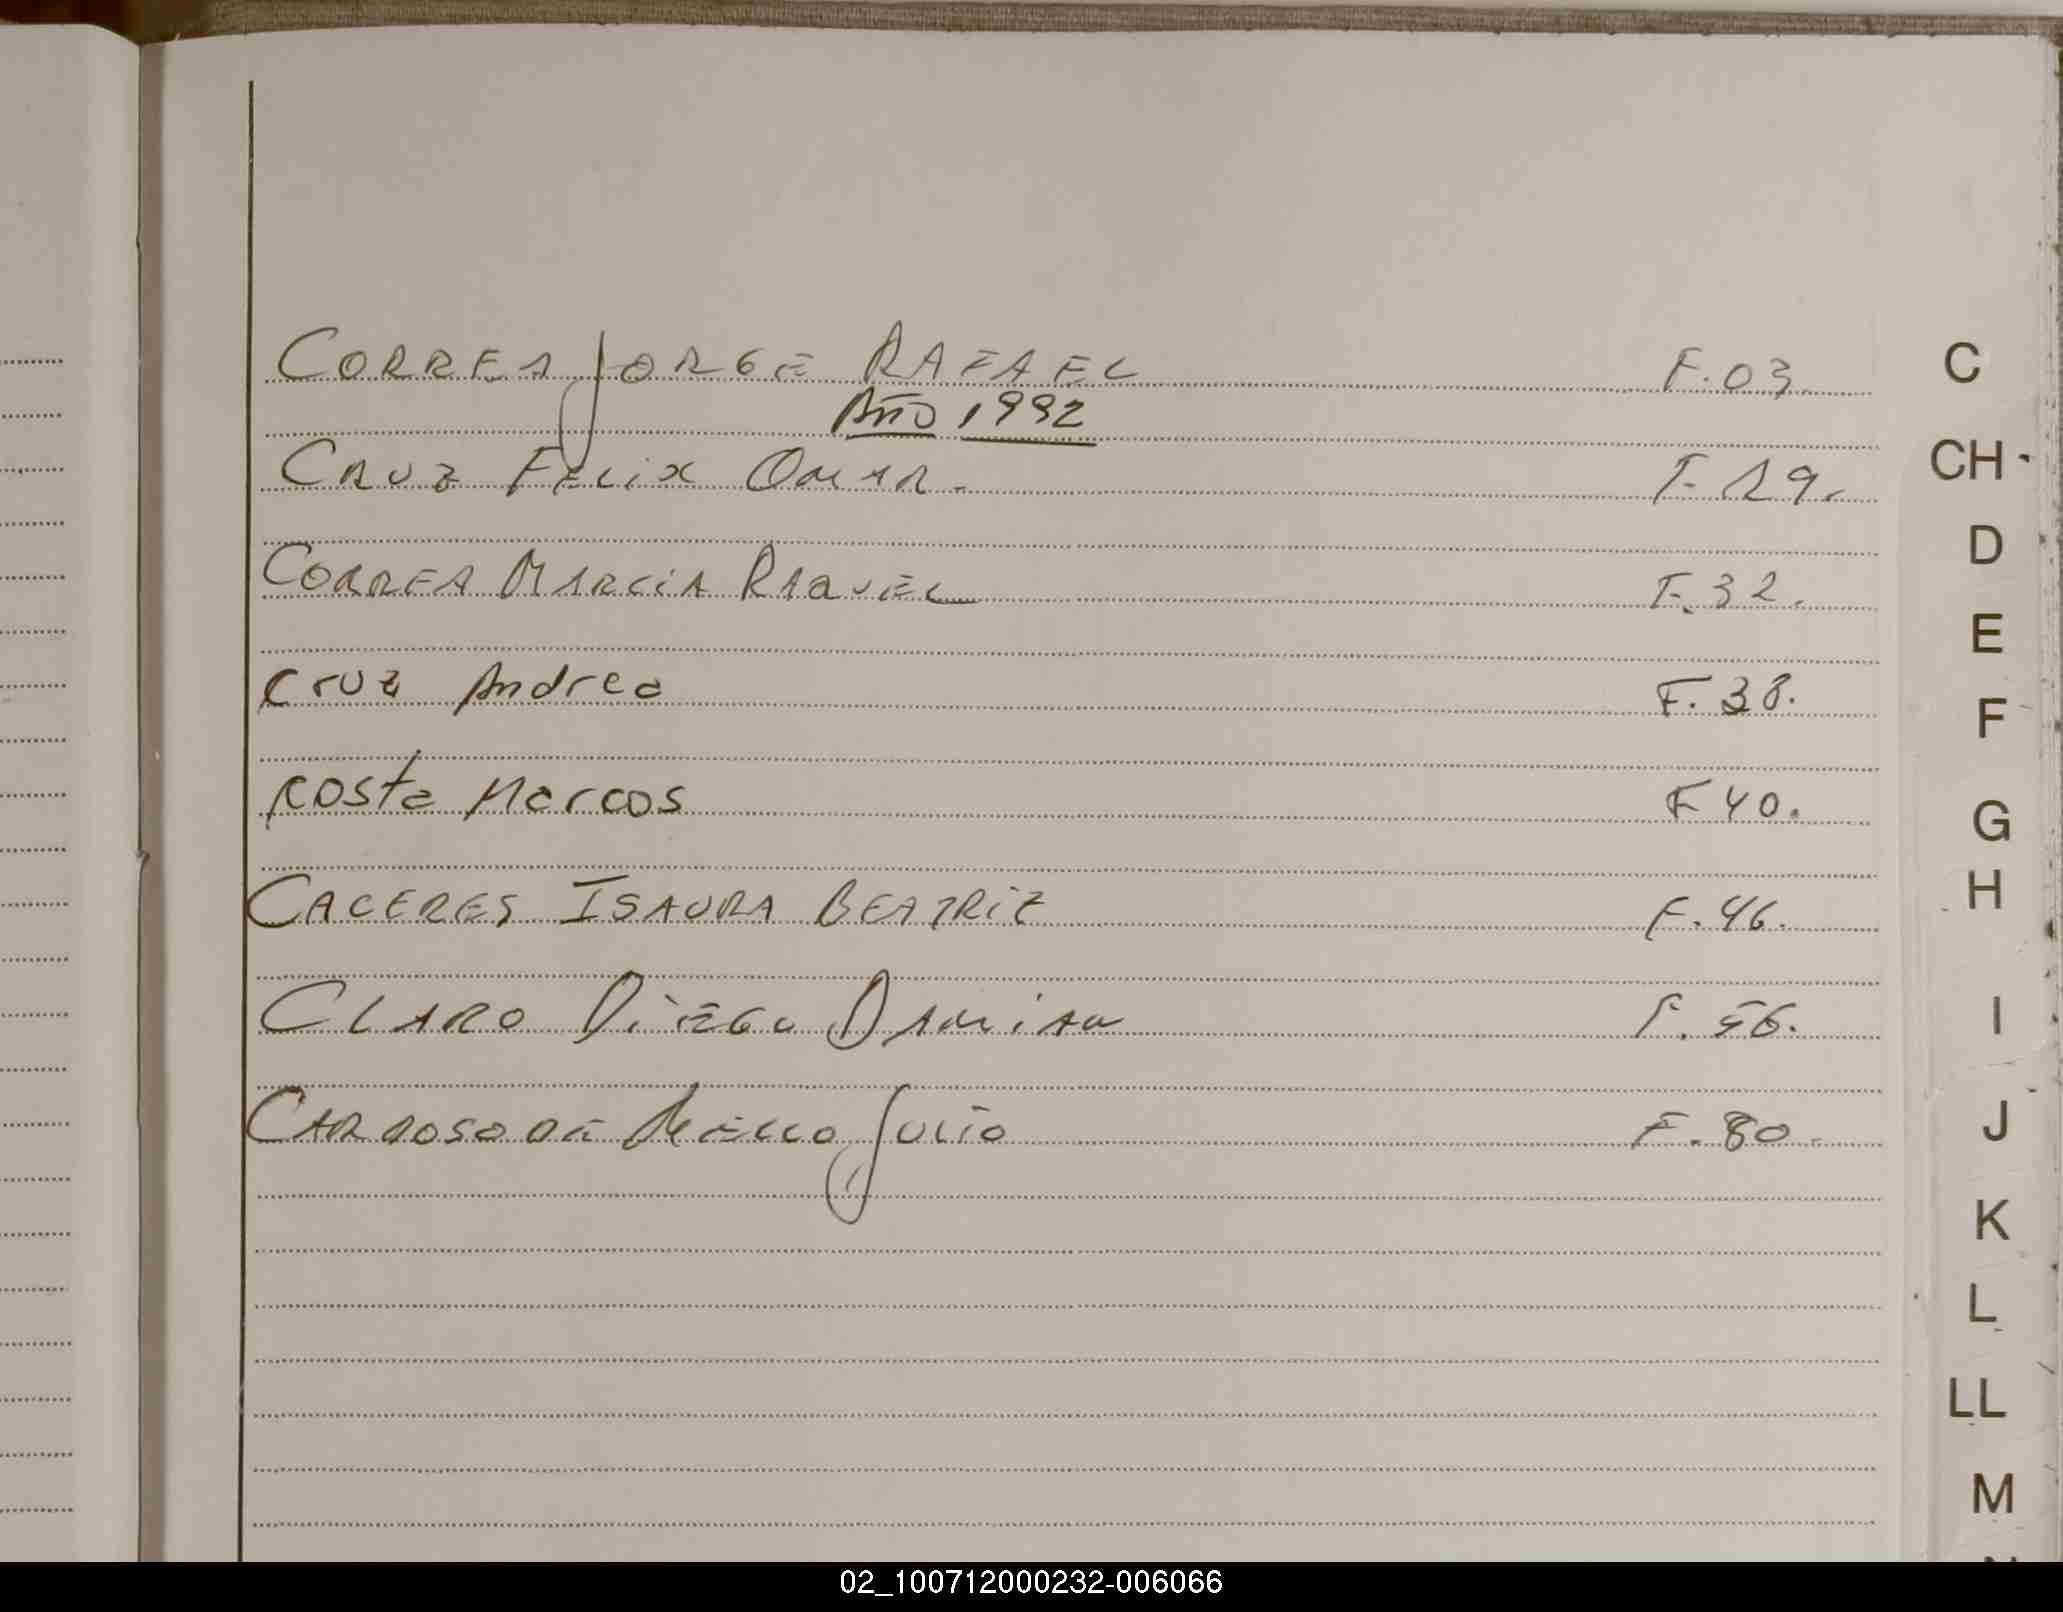 CORREA JORGE RAFAEL F.03.
Año 1992
CRUZ FELIX OMAR. F.19.
CORREA MARCIA RAQUEL F.32.
Cruz Andrea F.38.
Costa Marcos F 40.
CACERES ISAURA BEATRIZ F.46.
CLARO DIEGO DAMIAN F.56.
CARDOSO DE MELLO JULIO F.80.
C
CH
D
E
F
G
H
I
J
K
L
LL
M
02_100712000232-006066